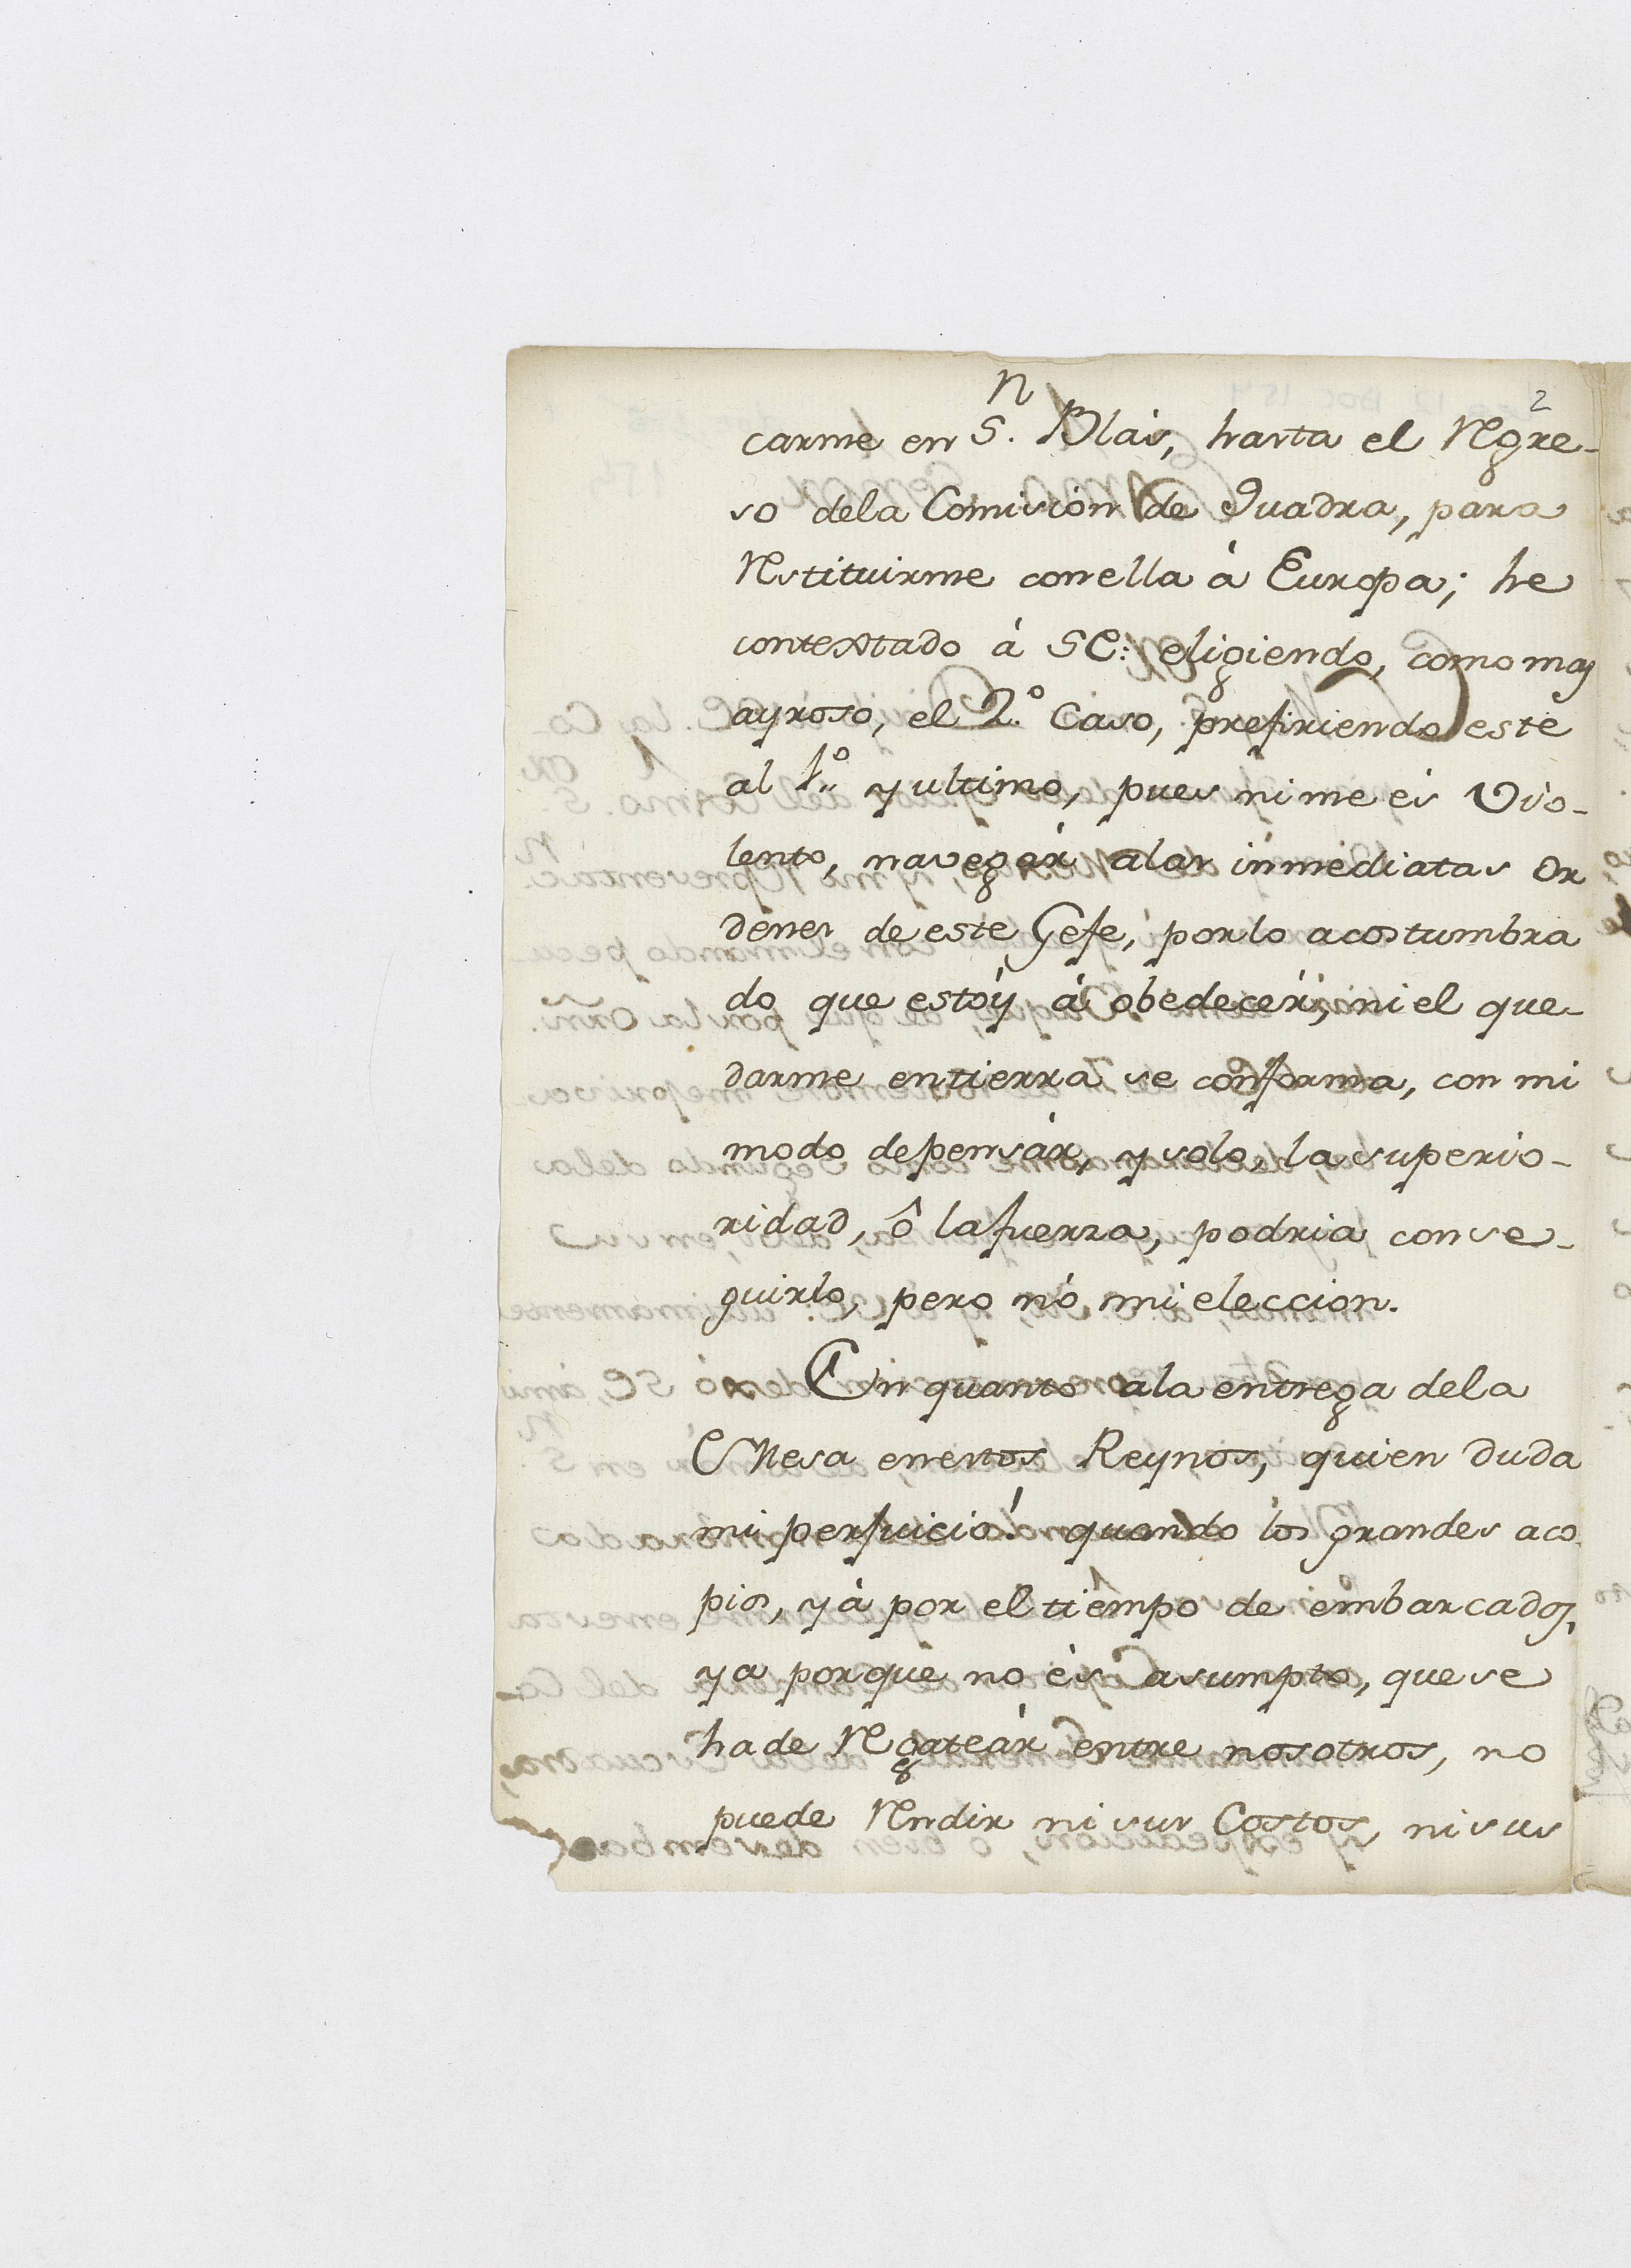 2
carme en S.n Blás, hasta el Regre-
so dela Comisión de Quadra, para
Restituirme con ella á Europa; he
contextado á SE: eligiendo, como mas
ayroso, el 2.º Caso, prefiriendo este
al 1.º y ultimo, pues ni me és Vio-
lento, navegár alas inmediatas Or
denes de este Gefe, por lo acostumbra
do que estóy á obedecér, ni el que-
darme entierra se conforma, con mi
modo depensár, y solo, la superio-
ridad, ô lafuerza, podria conse-
guirlo, pero nó mi eleccion.
En quanto ala entrega dela
Mesa enestos Reynos, quien duda
mi perjuicio! quando los grandes aco
pios, yá por el tiempo de embarcados,
ya porque no és asumpto, que se
hade Regateár entre nosotros, no
puede Rendir ni sus Costos, ni sus